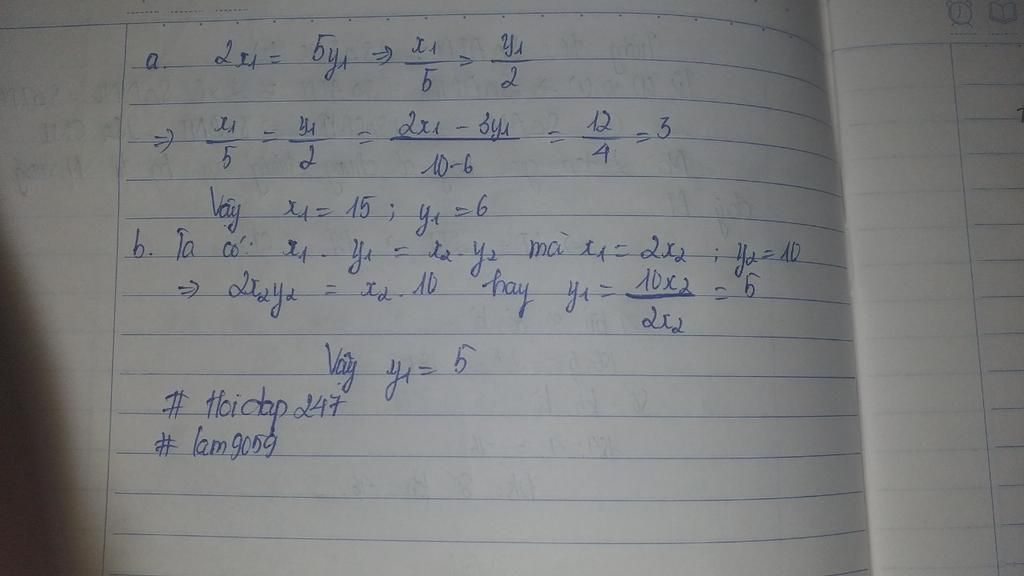 a. 2x₁ = 5y₁ ⇒ x₁/5 = y₁/2
⇒ x₁/5 = y₁/2 = (2x₁ - 3y₁)/(10-6) = 12/4 = 3
Vậy x₁ = 15 ; y₁ = 6
b. Ta có: x₁ . y₁ = x₂ . y₂ mà x₁ = 2x₂ ; y₂ = 10
⇒ 2x₂y₂ = x₂ . 10 hay y₁ = 10x₂/2x₂ = 5
Vậy y₁ = 5
# Hoidap247
# lam9059